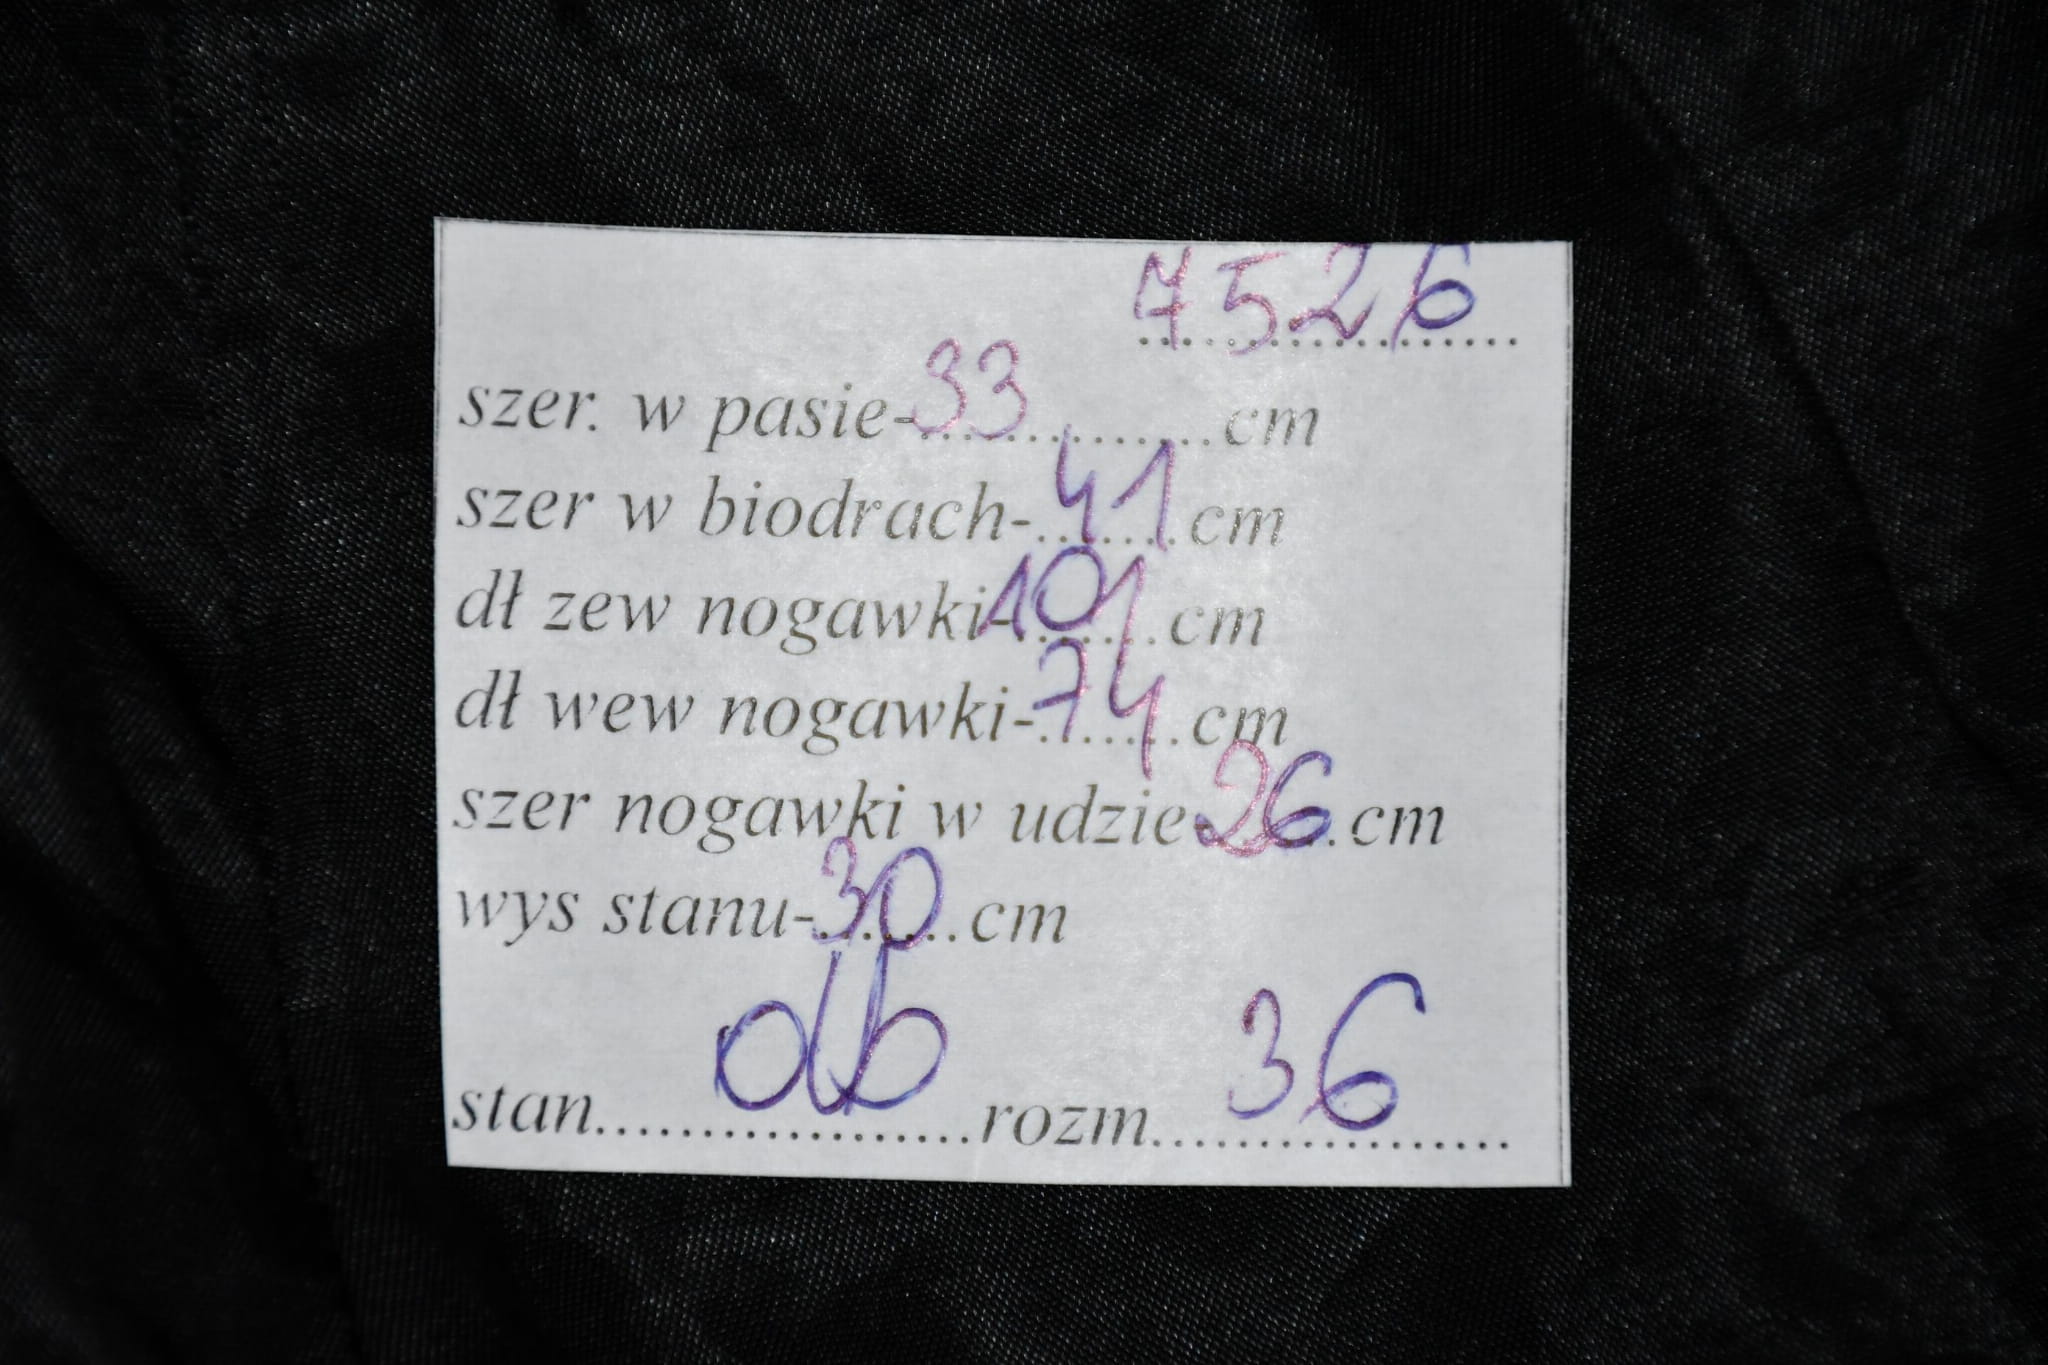 7526
szer. w pasie-33.............cm
szer w biodrach-..41..cm
dł zew nogawki-101.cm
dł wew nogawki-.74.cm
szer nogawki w udzie-26.cm
wys stanu-30..cm
stan........db........rozm........36........